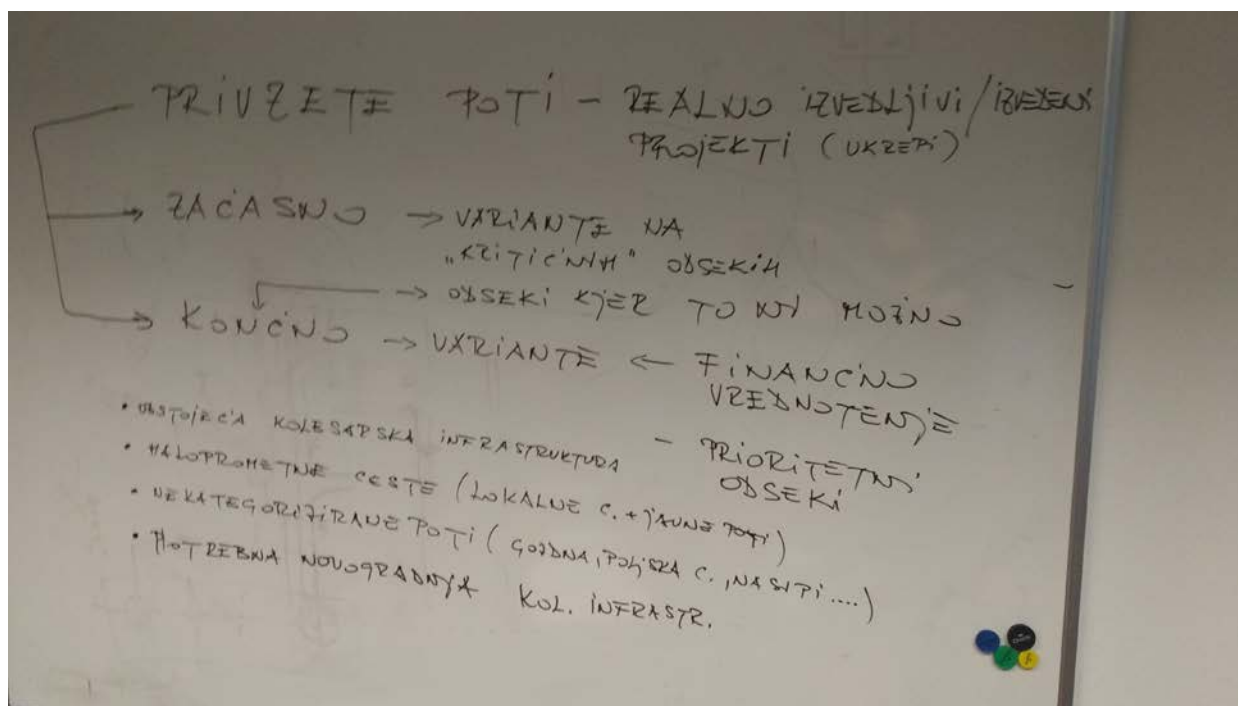 PRIVZETE POTI - REALNO IZVEDLJIVI/IZVEDENI
PROJEKTI (UKREPI)
→ ZAČASNO → VARIANTE NA
"KRITIČNIH" ODSEKIH
→ ODSEKI KJER TO NI MOŽNO
→ KONČNO → VARIANTE ← FINANČNO
VREDNOTENJE
- PRIORITETNI
ODSEKI
• OBSTOJEČA KOLESARSKA INFRASTRUKTURA
• MALOPROMETNE CESTE (LOKALNE C. + JAVNE POTI)
• NEKATEGORIZIRANE POTI (GOZDNA, POLJSKA C., NASIPI....)
• POTREBNA NOVOGRADNJA KOL. INFRASTR.